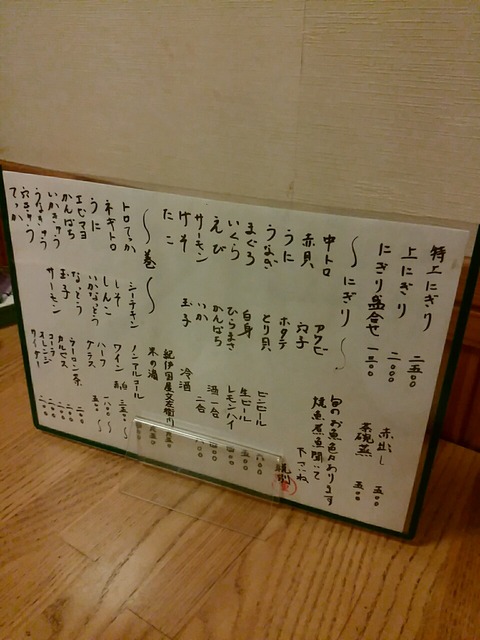 特上にぎり 二五〇〇
上にぎり 二〇〇〇
にぎり盛合せ 一三〇〇
赤出し 五〇〇
茶碗蒸 五〇〇
〜にぎり〜
旬のお魚色々あります
焼魚煮魚聞いて
下さいね
中トロ
赤貝
うに
うなぎ
まぐろ
いくら
えび
サーモン
げそ
たこ
アワビ
穴子
ホタテ
とり貝
白身
ひらまさ
かんぱち
いか
玉子
ビンビール 六〇〇
生ビール 五〇〇
レモンハイ 四〇〇
酒一合
二合
冷酒
紀伊国屋文左衛門
米の湯
〜巻〜
トロてっか
ネギトロ
うに
エビマヨ
かんぱち
いかきゅう
うなきゅう
穴きゅう
てっか
シーチキン
しそ
しんこ
いかなっとう
なっとう
玉子
サーモン
ノンアルコール
ワイン 赤 白
ハーフ
グラス 五〇〇
ウーロン茶
カルピス
コーラ
オレンジ